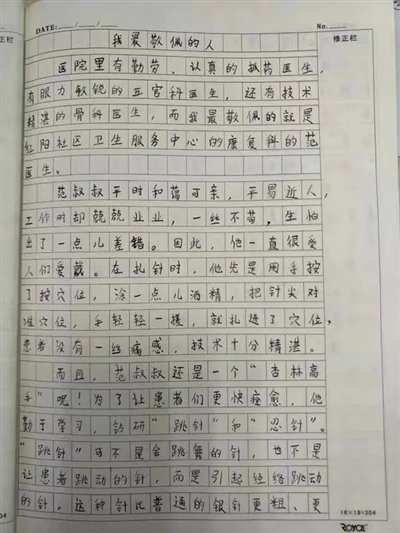 DATE: / /
No.
修正栏
我最敬佩的人
医院里有勤劳、认真的抓药医生,
有眼力敏锐的五官科医生,还有技术
精湛的骨科医生,而我最敬佩的就是
红阳社区卫生服务中心的康复科的范
医生。
范叔叔平时和蔼可亲,平易近人,
工作时却兢兢业业,一丝不苟,生怕
出了一点儿差错。因此,他一直很受
人们爱戴。在扎针时,他先是用手按
了按穴位,涂一点儿酒精,把针尖对
准穴位,手轻轻一揉,就扎进了穴位,
患者没有一丝痛感,技术十分精湛。
而且,范叔叔还是一个“杏林高
手”呢!为了让患者们更快痊愈,他
勤于学习,钻研“跳针”和“忍针”。
“跳针”可不是会跳舞的针,也不是
让患者跳动的针,而是引起经络跳动
的针。这种针比普通的银针更粗、更
16×19=304
ROYAL